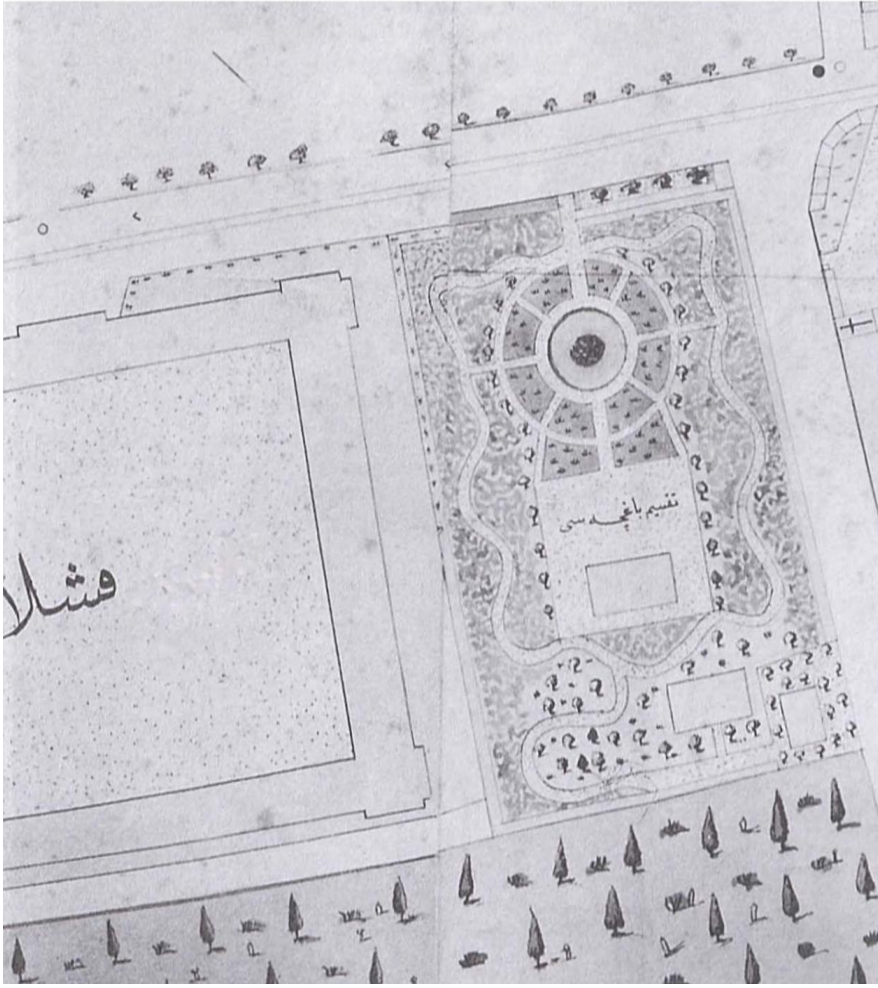 تقسیم باغچه سی
قشلا